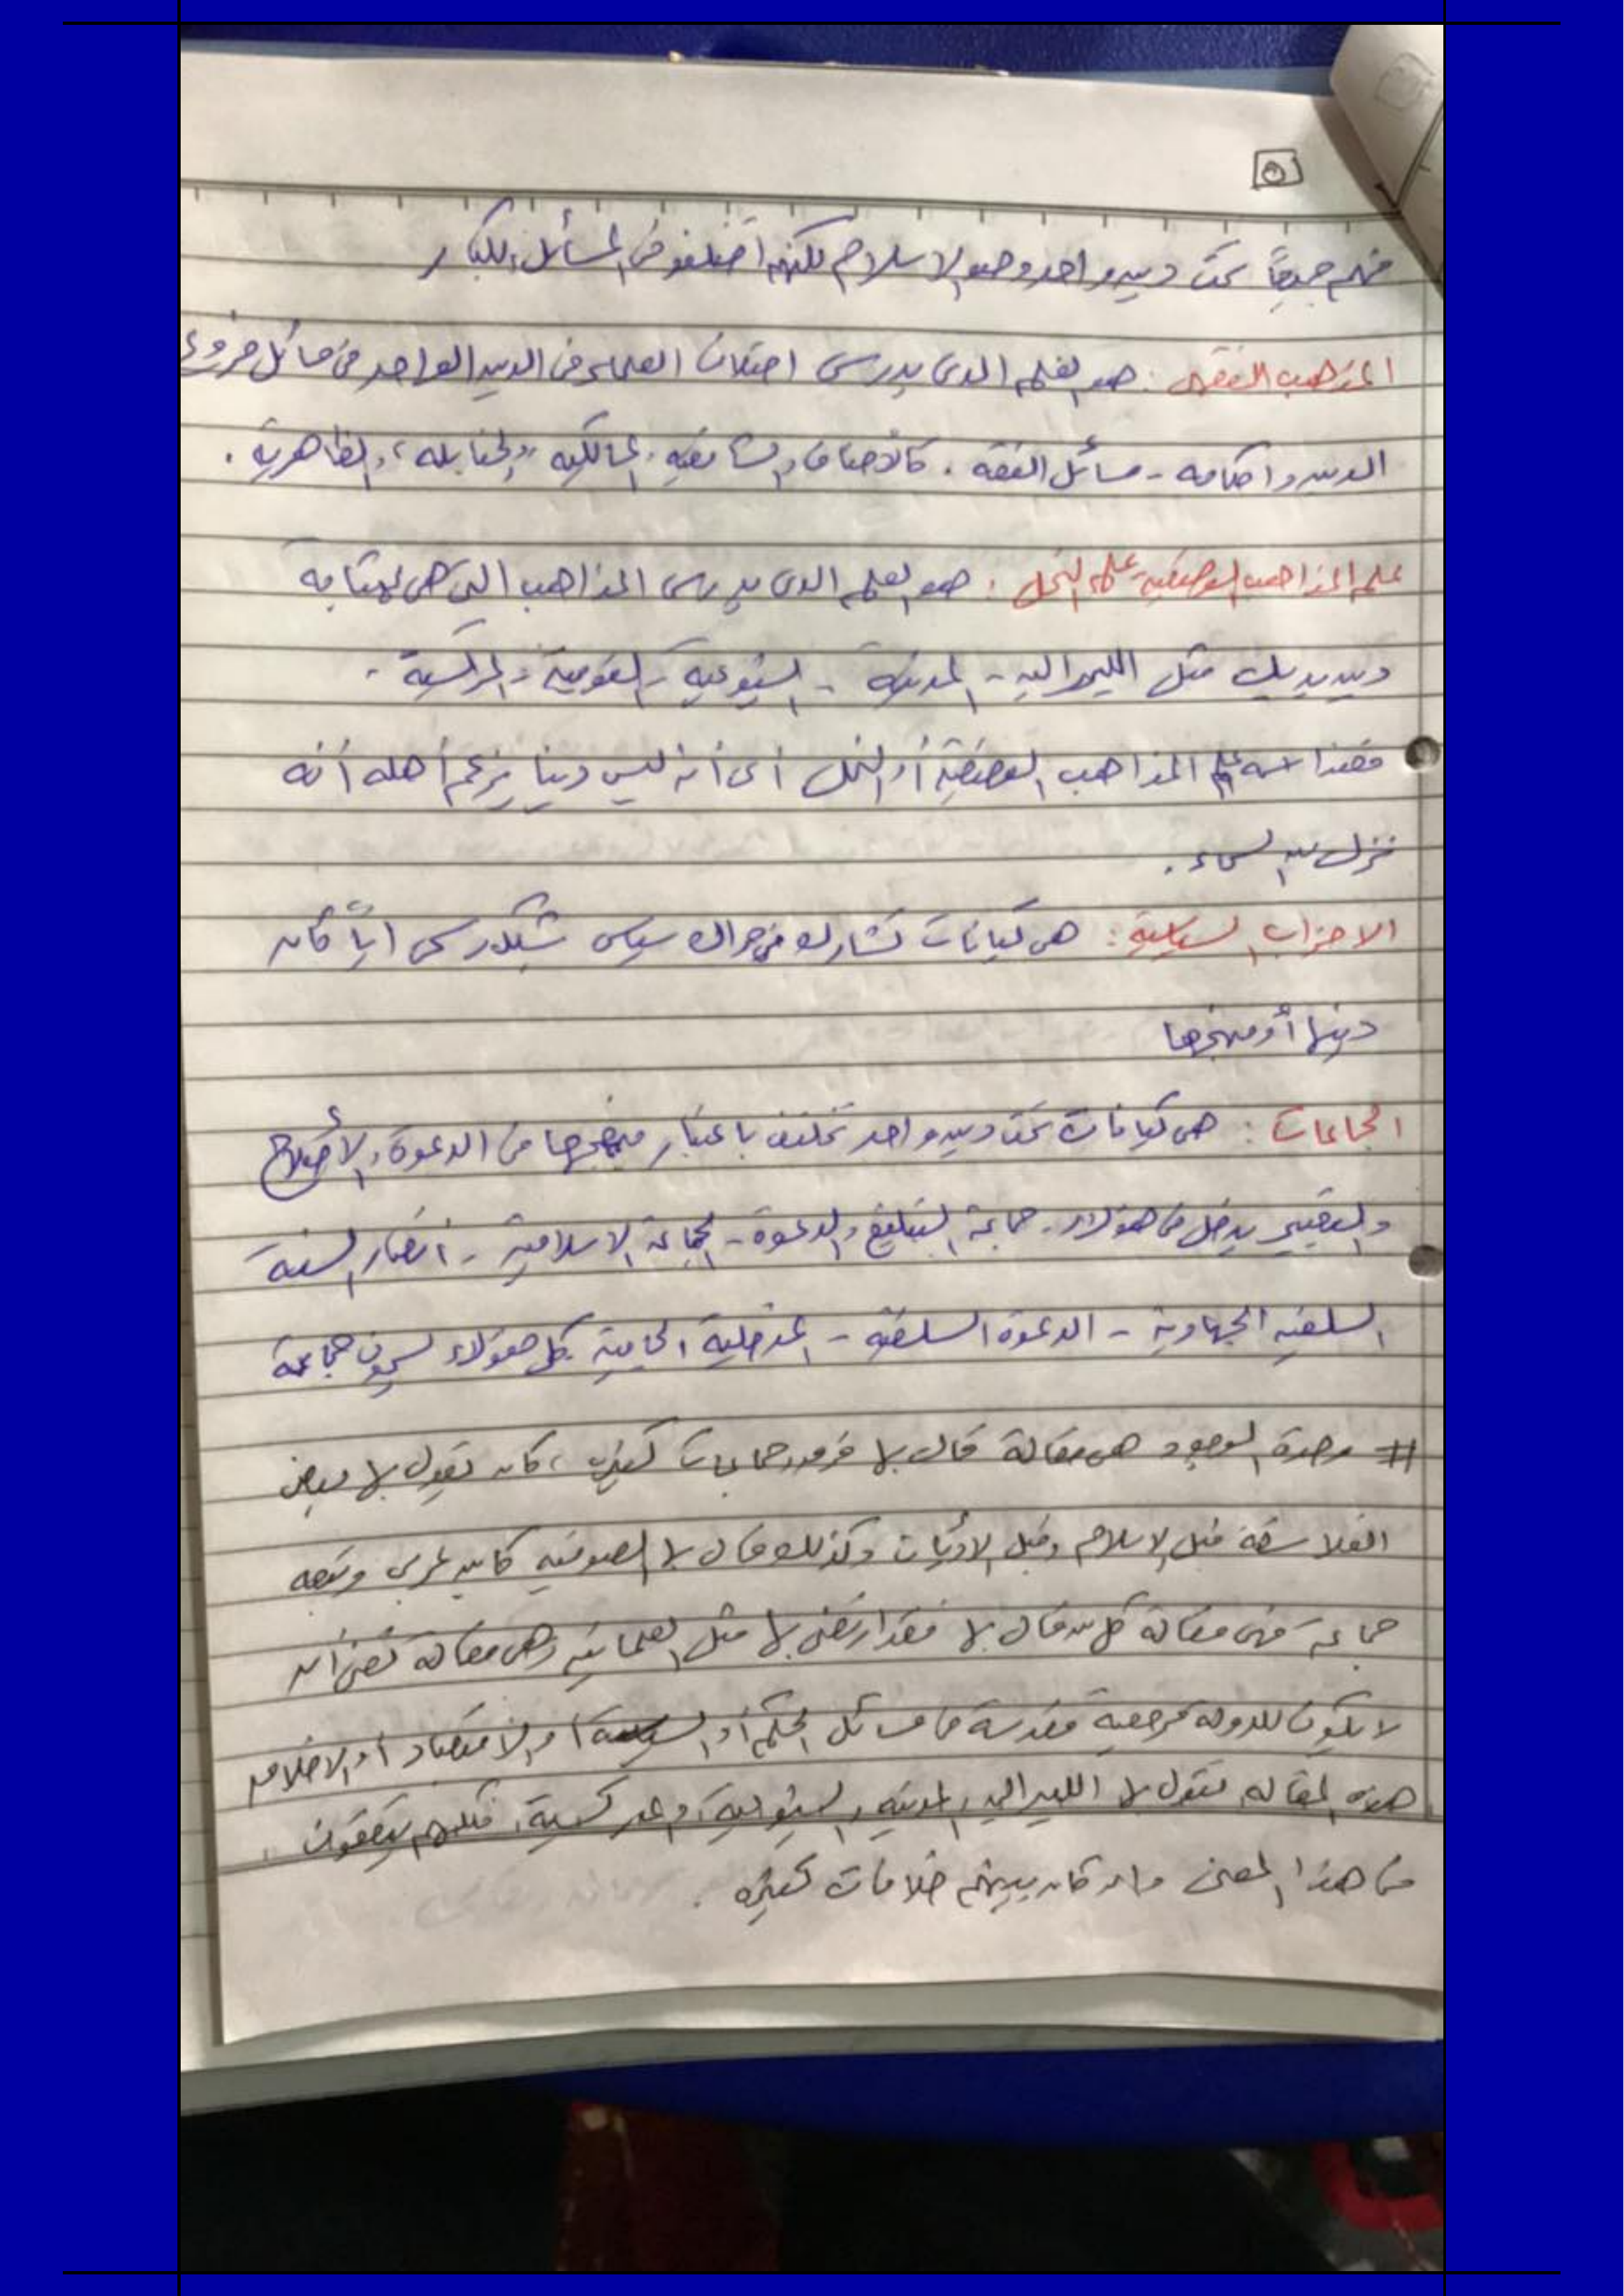 ٥
فهم جميعاً تحت دين واحد وهو الاسلام لكنهم اختلفو فى المسائل الكبار
المذهب الفقهى : هو العلم الذى يدرس اختلاف العلماء فى الدين الواحد فى مسائل فروع
الدين واحكامه - مسائل الفقه . كالأحناف والشافعيه والمالكيه والحنابله والظاهرية .
علم المذاهب الوضعية علم النحل : هو العلم الذى يدرس المذاهب التى هى بمثابه
دين بديل مثل الليبراليه - المدنية - الشيوعية - القومية والماركسية .
فهذا اسمه علم المذاهب الوضعية أو النحل أى أنه ليس دينا يزعم أهله أنه
نزل من السماء .
الاحزاب السياسية : هى كيانات تشارك فى حراك سياسى بشكل رسمى اياً كان
دينها أو منهجها
الجماعات : هى كيانات تحت دين واحد تختلف باعتبار منهجها فى الدعوة والأصلاح
والتغيير يدخل فى هؤلاء . جماعة التبليغ والدعوة - الجماعة الاسلامية - انصار السنة
السلفيه الجهادية - الدعوة السلفية - المدخلية الجامية كل هؤلاء يسمون جماعة
# وحدة الوجود هى مقالة قال بها فرق وجماعات كثيرة ، كان يقول بها بعض
الفلاسفة قبل الاسلام وقبل الاديان وكذلك قال بها الصوفيه كابن عربى وتبعه
جماعة فهى مقالة كل من قال بها فقد ارتضى بها مثل العلمانية وهى مقالة تعنى أن
لا يكون للدولة مرجعية مقدسة فى مسائل الحكم أو السياسة أو الاقتصاد أو الاخلاق
هذه المقاله تقول بها الليبراليه والمدنيه والشيوعية والماركسية ، فكلهم يتفقون
فى هذا المعنى وان كان بينهم خلافات كثيره .